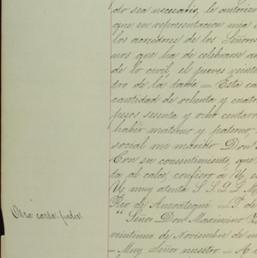 do sea necesario, le autorizo
que en representacion mia
los acreedores de los Señores
nos que ha de celebrarse
de lo civil, el jueves veinte
tro de la tarde. — Este
cantidad de ochenta y cuatro
pesos sesenta y ocho centavos
haber materno y paterno,
social mi marido Don
Con su consentimiento, que
da al calce, confiero de V.
Y muy atenta S. S. Q. B.
Rez de Anzoategui
"Señor Don Maximino
veintiuno de Noviembre de
Muy Señor nuestro
Otra carta poder.